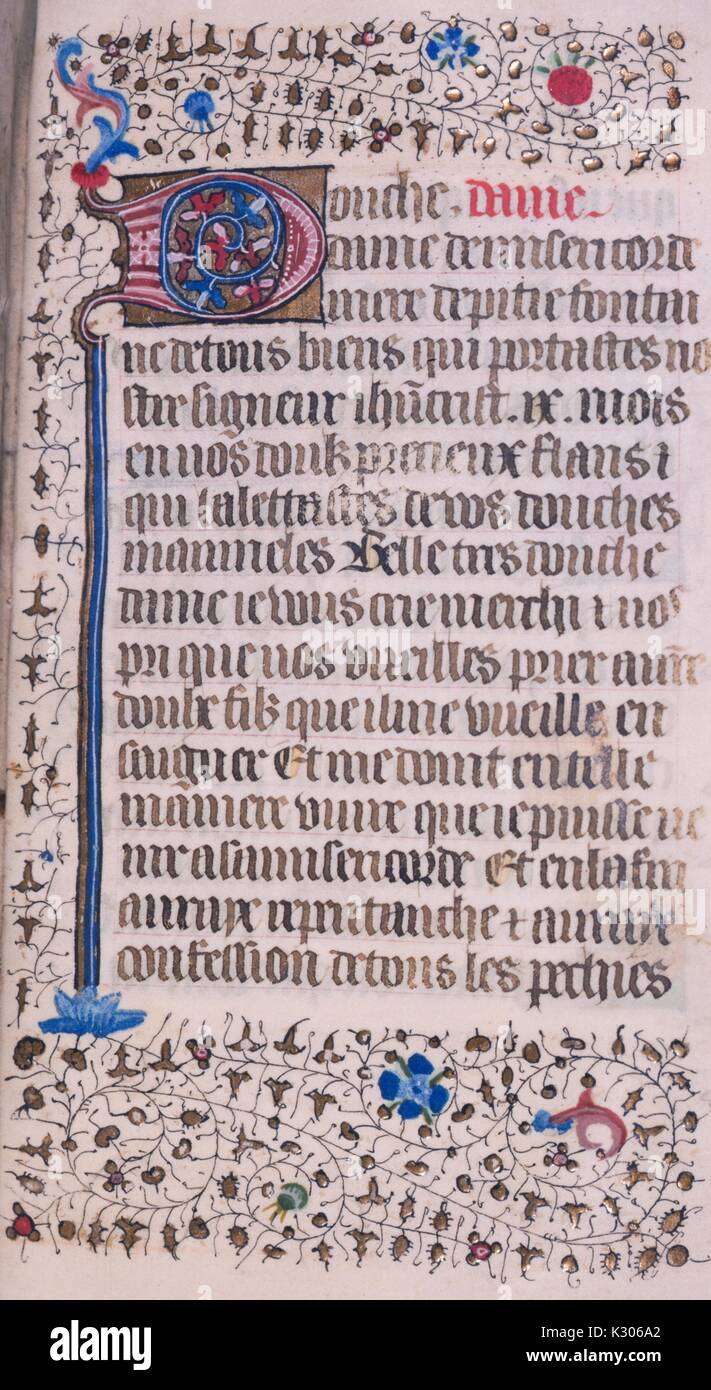 Douche. dame
dame de misericorde
mere de pitie fontai
ne de tous biens qui portastes no
stre signeur ihūcrist. ix. mois
en vo⁹ doulz precieux flans ⁊
qui lalettastes de vos douches
mameles Belle tres douche
dame ie vous crie merchi ⁊ vo⁹
pri que vos vueilles prier a vr̄e
doulx filz que il me vueille en
saignier Et me doint en telle
maniere viure que ie puisse ve
nir a sa misericorde Et en la fin
auraye repentanche ⁊ auraye
confession de tous les pechies
alamy stock photo
K306A2
www.alamy.com